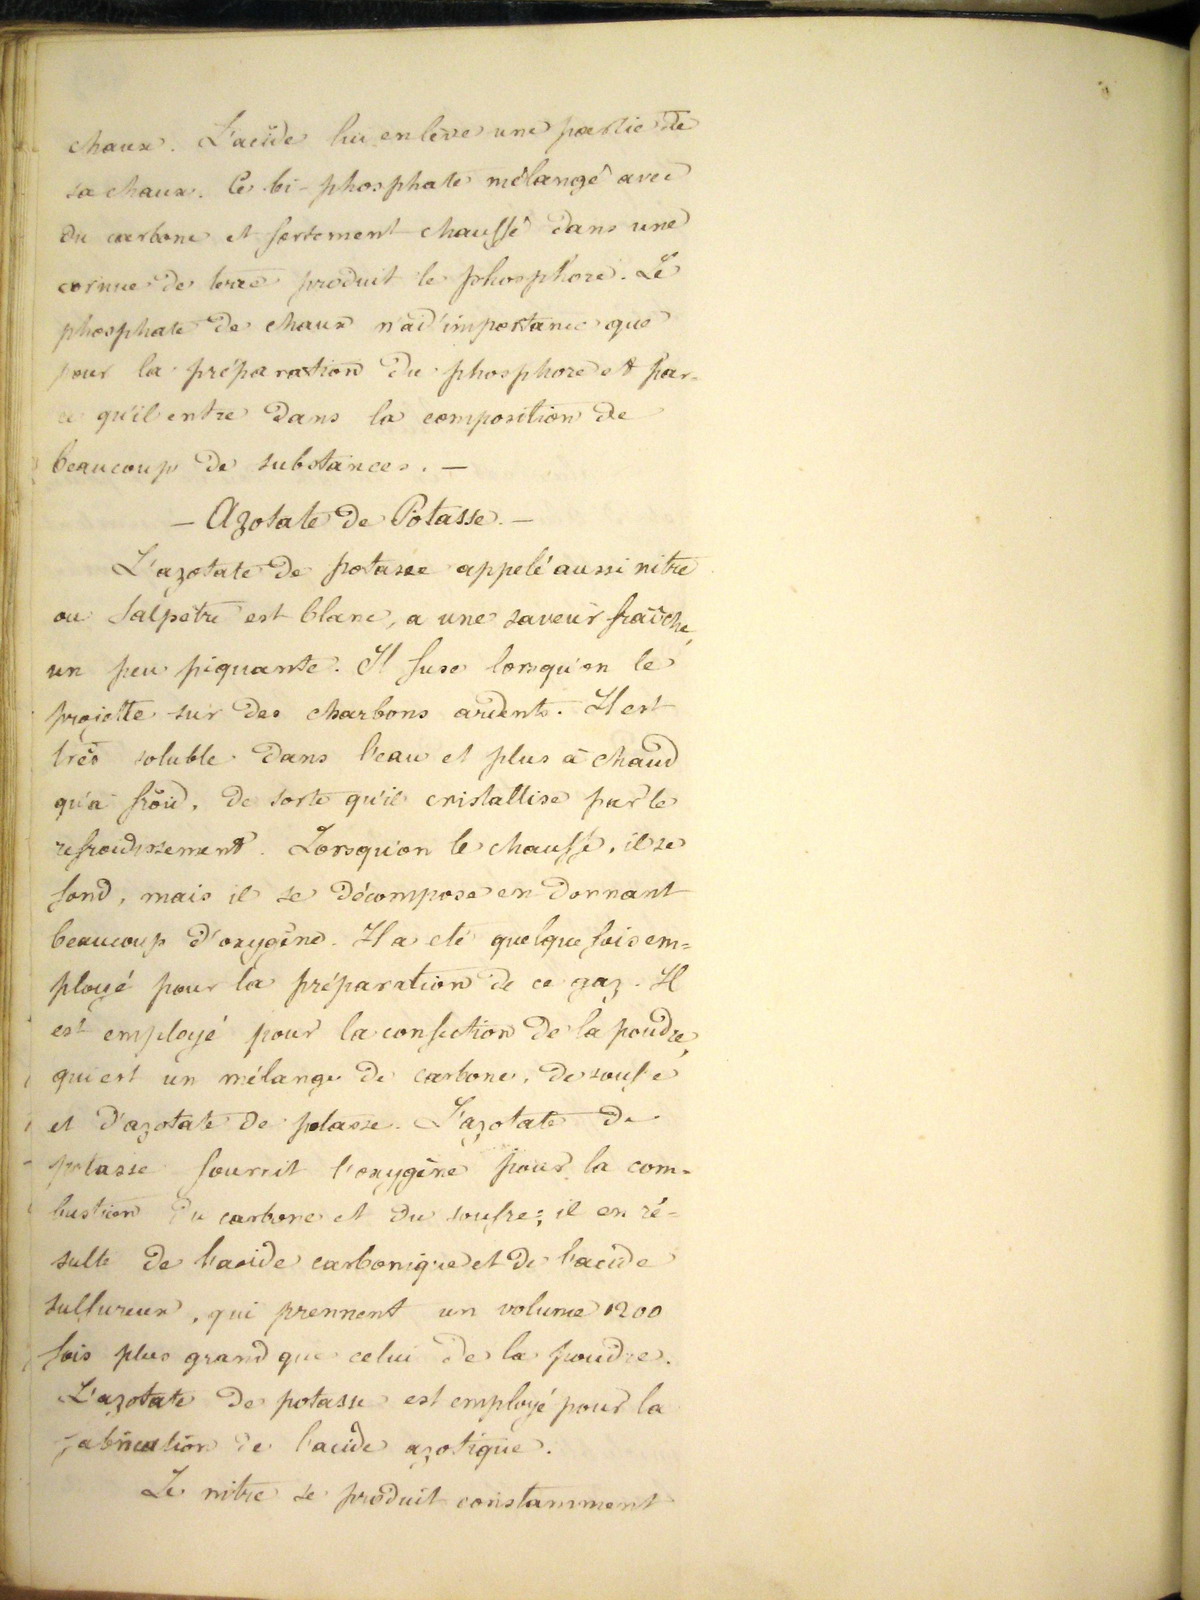 chaux. L'acide lui enlève une partie de
sa chaux. Ce bi-phosphate mélangé avec
du carbone et fortement chauffé dans une
cornue de terre produit le phosphore. Le
phosphate de chaux n'a d'importance que
pour la préparation du phosphore et par-
ce qu'il entre dans la composition de
beaucoup de substances. —
— Azotate de Potasse. —
L'azotate de potasse appelé aussi nitre
ou salpetre est blanc, a une saveur fraîche,
un peu piquante. Il fuse lorsqu'on le
projette sur des charbons ardents. Il est
très soluble dans l'eau et plus à chaud
qu'à froid, de sorte qu'il cristallise par le
refroidissement. Lorsqu'on le chauffe, il se
fond, mais il se décompose en donnant
beaucoup d'oxygène. Il a été quelquefois em=
ployé pour la préparation de ce gaz. Il
est employé pour la confection de la poudre,
qui est un mélange de carbone, de soufre
et d'azotate de potasse. L'azotate de
potasse fournit l'oxygène pour la com-
bustion du carbone et du soufre; il en ré-
sulte de l'acide carbonique et de l'acide
sulfureux, qui prennent un volume 1200
fois plus grand que celui de la poudre.
L'azotate de potasse est employé pour la
fabrication de l'acide azotique.
Le nitre se produit constamment